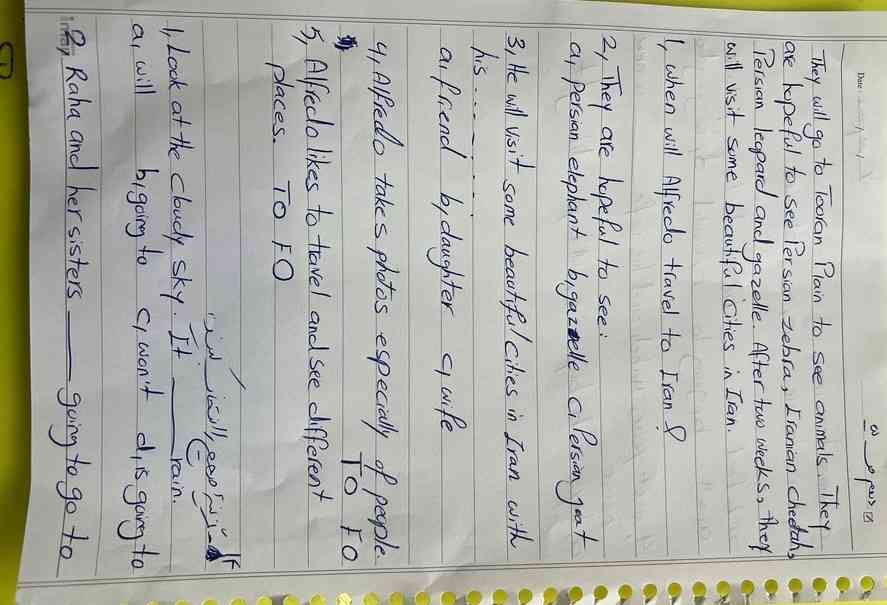 Date:
They will go to Tooran Plain to see animals. They
are hopeful to see Persian zebra, Iranian cheetah,
Persian leopard and gazelle. After two weeks, they
will visit some beautiful cities in Iran.
1, when will Alfredo travel to Iran?
2, They are hopeful to see:
a, Persian elephant b, gazelle c, Persian goat
3, He will visit some beautiful cities in Iran with
his ........
a, friend b, daughter c, wife
4, Alfredo takes photos especially of people.
TO FO
5, Alfredo likes to travel and see different
places. TO FO
1, Look at the cloudy sky. It ___ rain.
a, will b, going to c, won't d, is going to
2, Raha and her sisters ___ going to go to